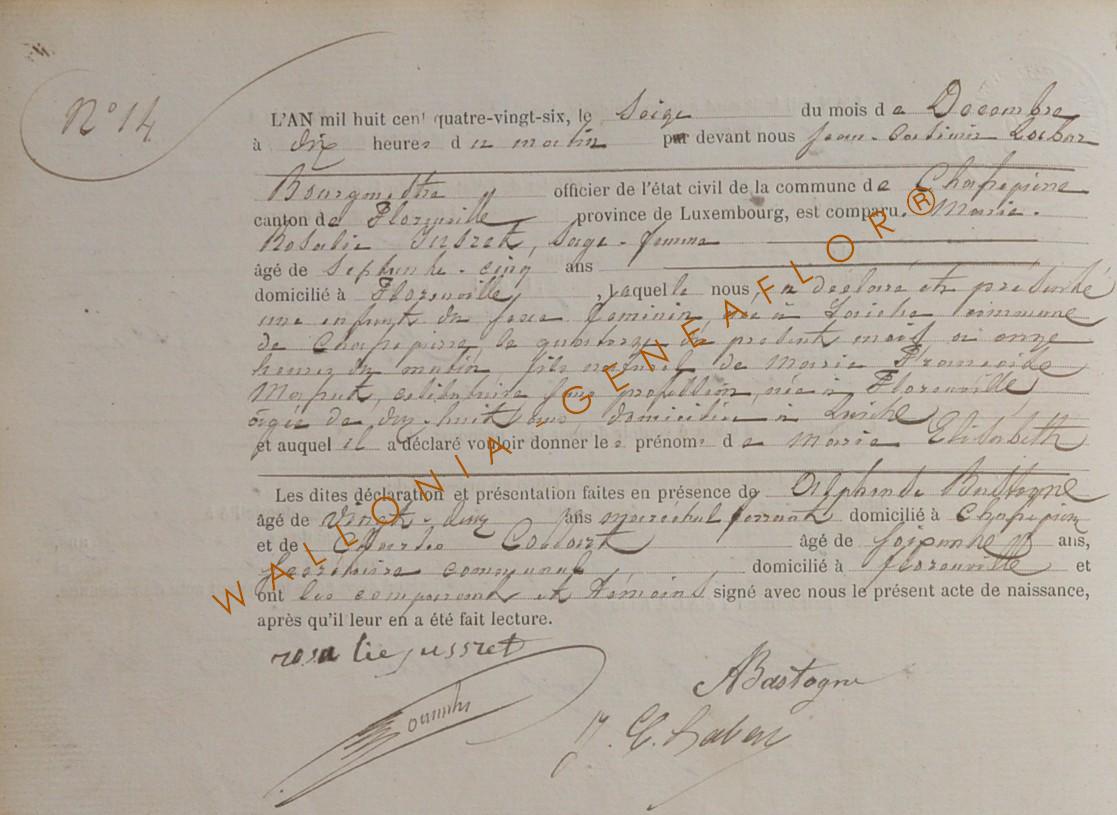 N° 14
L'AN mil huit cent quatre-vingt-six, le Seize du mois de Decembre
à dix heures du matin par devant nous Jean-Casimir
Bourgmestre officier de l'état civil de la commune de Chassepierre
canton de Florenville province de Luxembourg, est comparu. Marie-
Rosalie Jusseret, Sage-femme
âgé de Septante-cinq ans
domicilié à Florenville, laquelle nous a déclaré et présenté
une enfant du sexe feminin né à Laiche commune
de Chassepierre le quatorze du présent mois à onze
heures du matin, fils naturel de Marie Françoise
celibataire sans profession, née à Florenville
agée de dix-huit ans, domiciliée à Laiche
et auquel il a déclaré vouloir donner les prénoms de Marie Elisabeth
Les dites déclaration et présentation faites en présence de Alphonse Bastogne
âgé de Vingt-cinq ans maréchal ferrant domicilié à Chassepierre
et de âgé de soixante ans,
Secrétaire communal domicilié à florenville et
ont les comparant et témoins signé avec nous le présent acte de naissance,
après qu'il leur en a été fait lecture.
rosalie jusseret
ABastogne
WALLONIA - GENEAFLOR ®